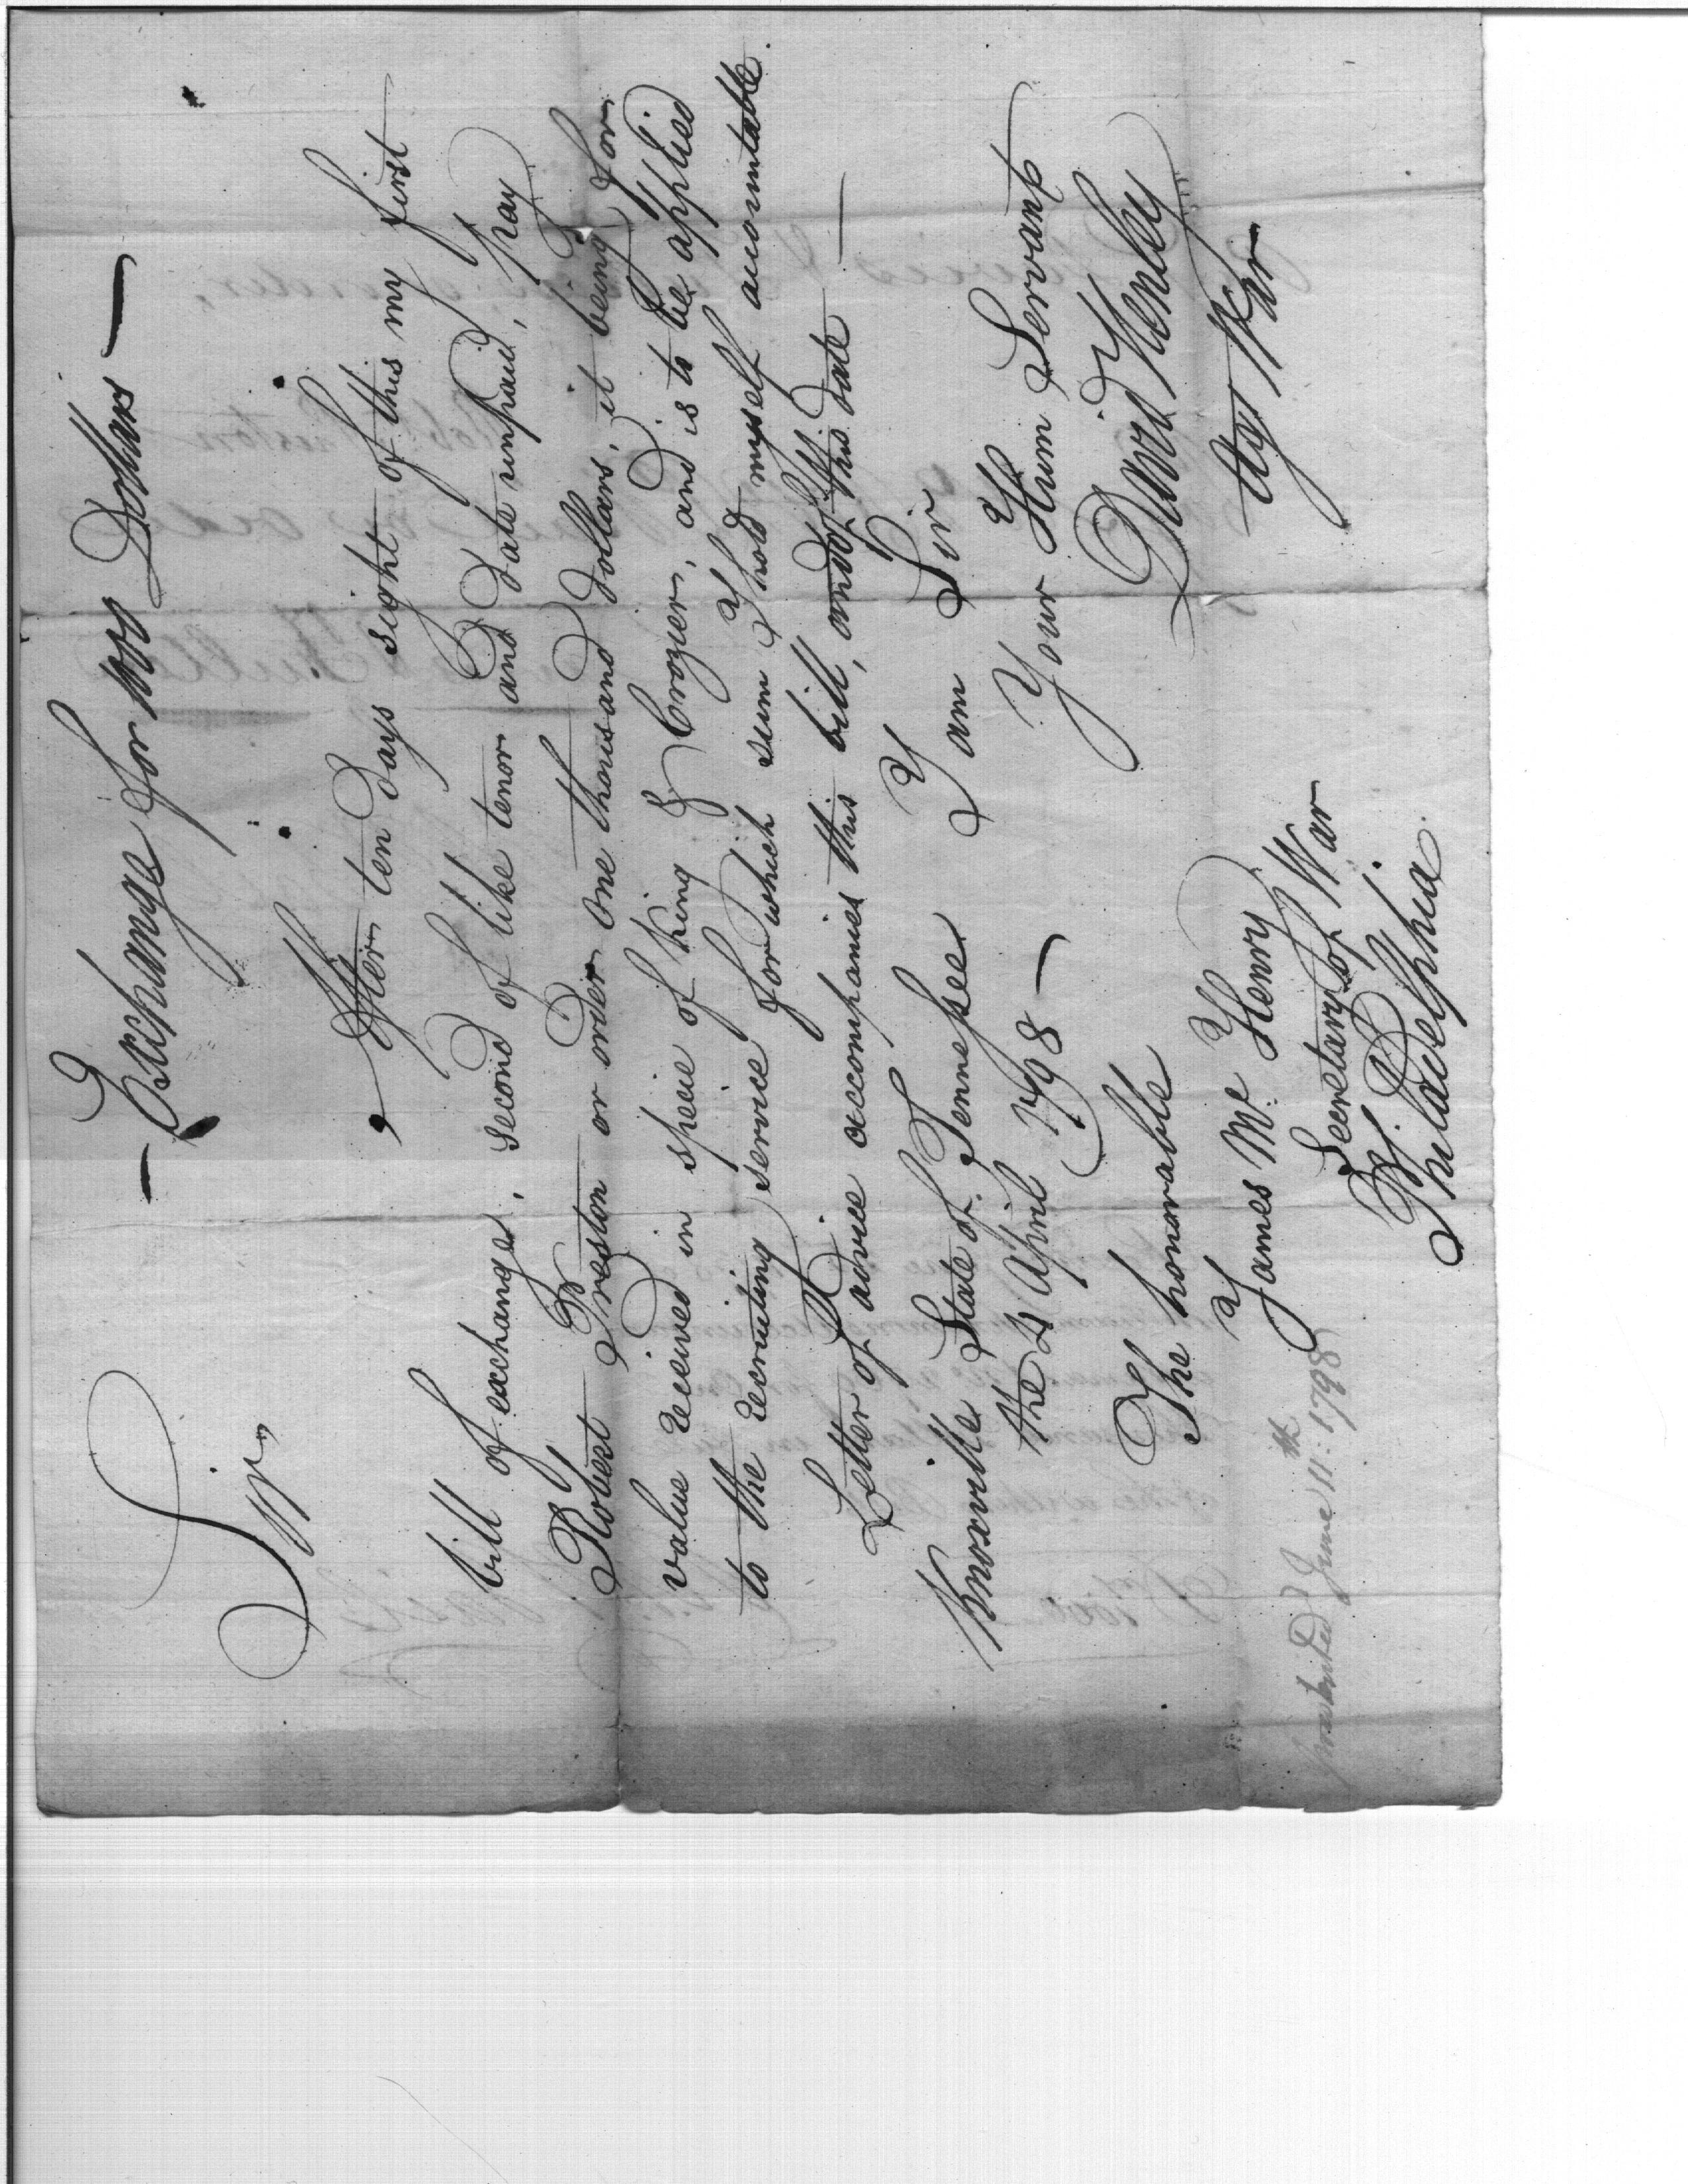 — Exchange for 1000 Dollars —
Sir
After ten days sight of this my first
bill of exchange, second of like tenor and date unpaid, pay
Robert Preston or order one thousand dollars, it being for
value received in specie of King & Crozier, and is to be applied
to the recruiting service for which sum I hold myself accountable.
Letter of advice accompanies this bill, and of this date —
I am Sir
Your Hum Servant
David Henley
Agt War
Knoxville State of Tennessee
the 4 April 1798 —
The honorable
James Mc Henry
Secretary of War
Philadelphia.
presented June 11th: 1798